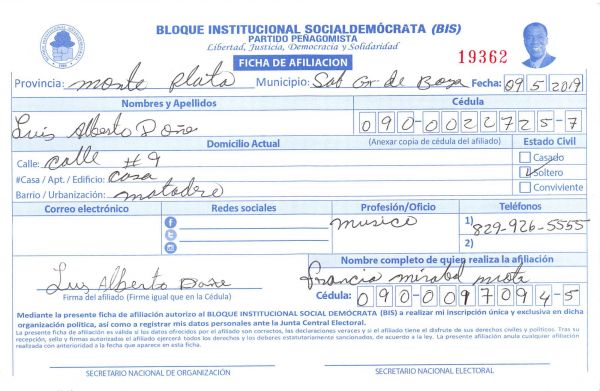 BLOQUE INSTITUCIONAL SOCIALDEMÓCRATA (BIS)
PARTIDO PEÑAGOMISTA
Libertad, Justicia, Democracia y Solidaridad
FICHA DE AFILIACION 19362
Provincia: Monte Plata Municipio: Sab Gr de Boya Fecha: 09 5 2019
Nombres y Apellidos Cédula
Luis Alberto Doñe 090-0022725-7
Domicilio Actual (Anexar copia de cédula del afiliado) Estado Civil
Calle: calle #9 Casado
#Casa / Apt. / Edificio: casa Soltero
Barrio / Urbanización: matadero Conviviente
Correo electrónico Redes sociales Profesión/Oficio Teléfonos
musico 1) 829-926-5555
2)
Nombre completo de quien realiza la afiliación
Luis Alberto Doñe Francia mirabal
Firma del afiliado (Firme igual que en la Cédula) Cédula: 090-0097094-5
Mediante la presente ficha de afiliación autorizo al BLOQUE INSTITUCIONAL SOCIAL DEMÓCRATA (BIS) a realizar mi inscripción única y exclusiva en dicha
organización política, así como a registrar mis datos personales ante la Junta Central Electoral.
La presente ficha de afiliación es válida si los datos ofrecidos por el afiliado son correctos, las declaraciones veraces y si el afiliado tiene el disfrute de sus derechos civiles y políticos. Tras su
recepción, sello y firmas autorizadas el afiliado ejercerá todos los derechos y los deberes estatutariamente sancionados, de acuerdo a la ley. La presente afiliación anula cualquier afiliación
realizada con anterioridad a la fecha que aparece en esta ficha.
SECRETARIO NACIONAL DE ORGANIZACIÓN SECRETARIO NACIONAL ELECTORAL